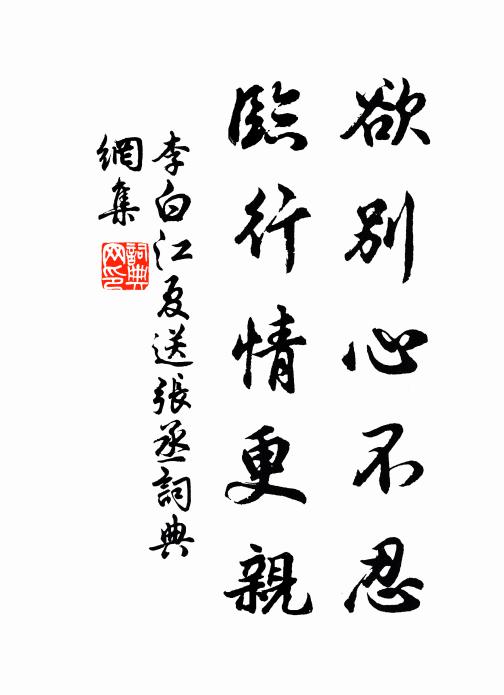 欲別心不忍
臨行情更親
李白江夏送張丞詞典
網集
詞典网印